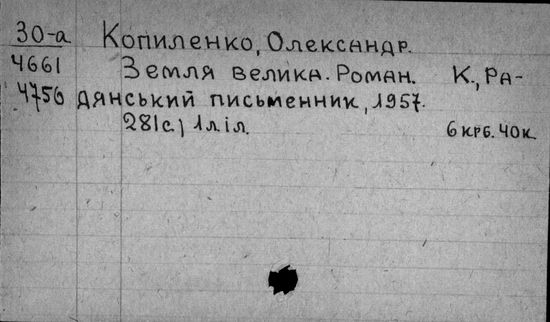 30-а Копиленко, Олександр.
4661 Земля велика. Роман. К., Ра-
4756 дянський письменник, 1957.
281с., 1л.іл. 6 крб. 40к.